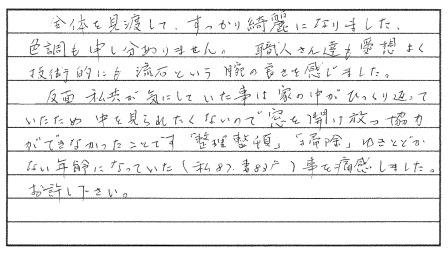 全体を見渡して、すっかり綺麗になりました、
色調も申し分ありません。 職人さん達も愛想よく
技術的にも 流石という 腕の良さを感じました。
反面 私共が気にしていた事は 家の中がひっくり返って
いたため 中を見られたくないので 窓を開け放つ 協力
ができなかったことです 「整理整頓」「掃除」ゆきとどか
ない年齢になっていた(私87.妻83才)事を痛感しました。
お許し下さい。